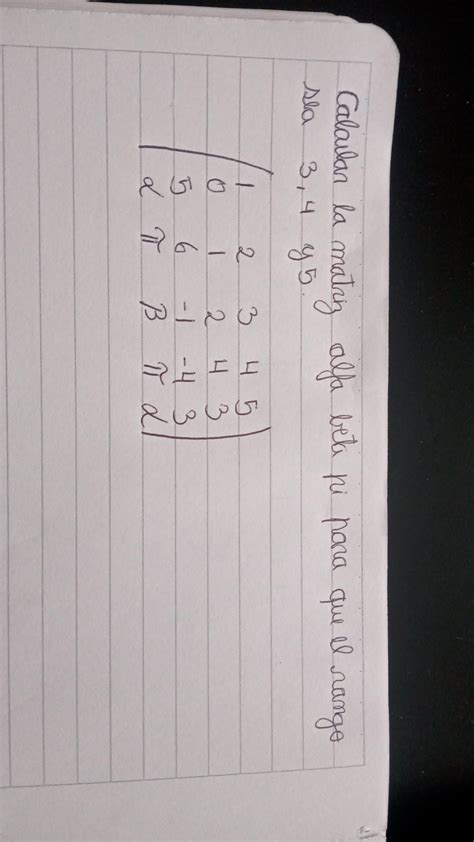 Calcular la matriz alfa beta pi para que el rango
sea 3, 4 y 5.
1 2 3 4 5
0 1 2 4 3
5 6 -1 -4 3
α π β π α